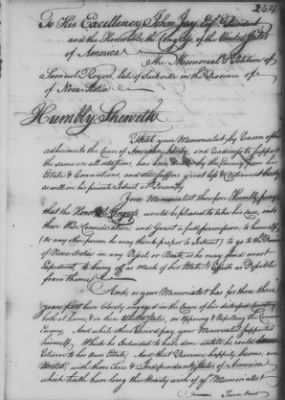 To His Excellency John Jay Esqr. President
and the Honorable the Congress of the United States
of America
The Memorial & Petition of
Samuel Rogers, late of Sackville in the Province of
of Nova Scotia
Humbly Sheweth
That your Memorialist by reason of his
adherence to the Cause of America, and readiness to support
the same on all occasions, has been by the Enemy from his
Estate & Connections, and still suffers great loss & detriment thereby
as well in his private Interest as Family
Your Memorialist therefore Humbly prays
that the Honble. Congress would be pleased to take his case under
their Consideration and Grant a full permission to himself
(or any other person he may think proper to Intrust) to go to the Province
of Nova Scotia in any Vessel or Boat, as he may find most
Expedient, to bring off as much of his Estate & Effects as Possible
from thence
And, as your Memorialist has for these three
years past been closely engaged in the cause of his distressed Country
both at home, & in these United States, in Opposing & Repelling the Common
Enemy, And while there Occupied, your Memorialist supported
himself, Which he Intended to have done until he could have
return to his Own Estate, And that Province happily become, and
United, with those Free & Independent States of America
which hath been long the Hearty wish of yr Memorialist